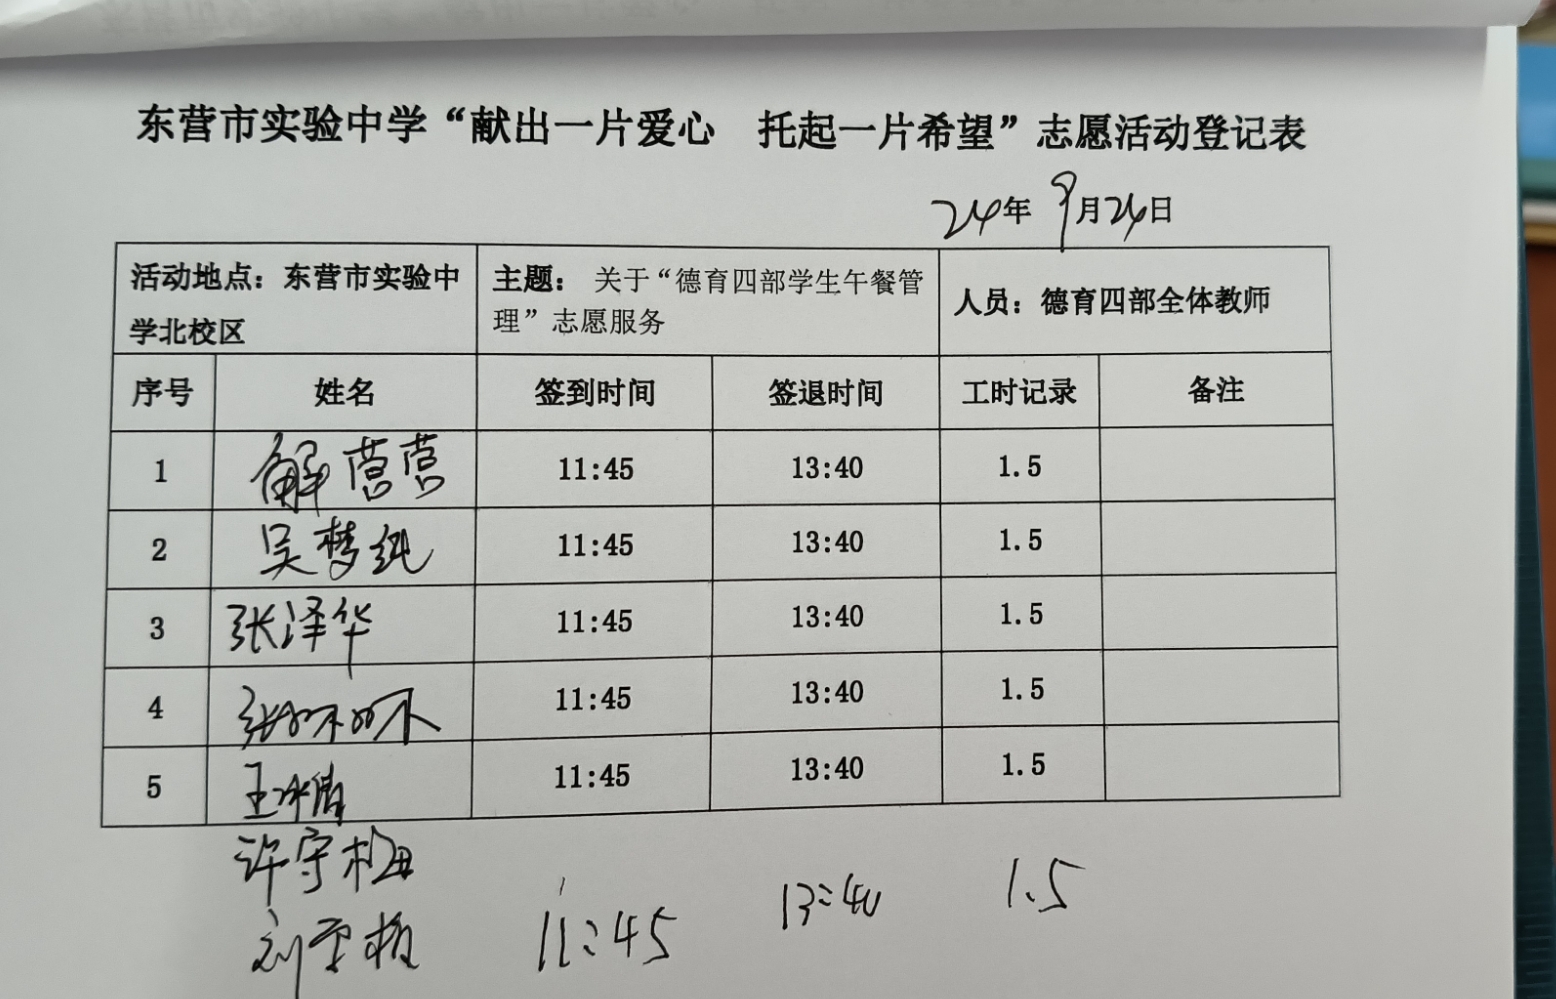 东营市实验中学“献出一片爱心 托起一片希望”志愿活动登记表
24年 9月24日
活动地点：东营市实验中学北校区
主题： 关于“德育四部学生午餐管理”志愿服务
人员：德育四部全体教师
序号 姓名 签到时间 签退时间 工时记录 备注
1 解营营 11:45 13:40 1.5
2 吴梦纯 11:45 13:40 1.5
3 张泽华 11:45 13:40 1.5
4 张 11:45 13:40 1.5
5 王冰倩 11:45 13:40 1.5
许守梅
刘 11:45 13:40 1.5